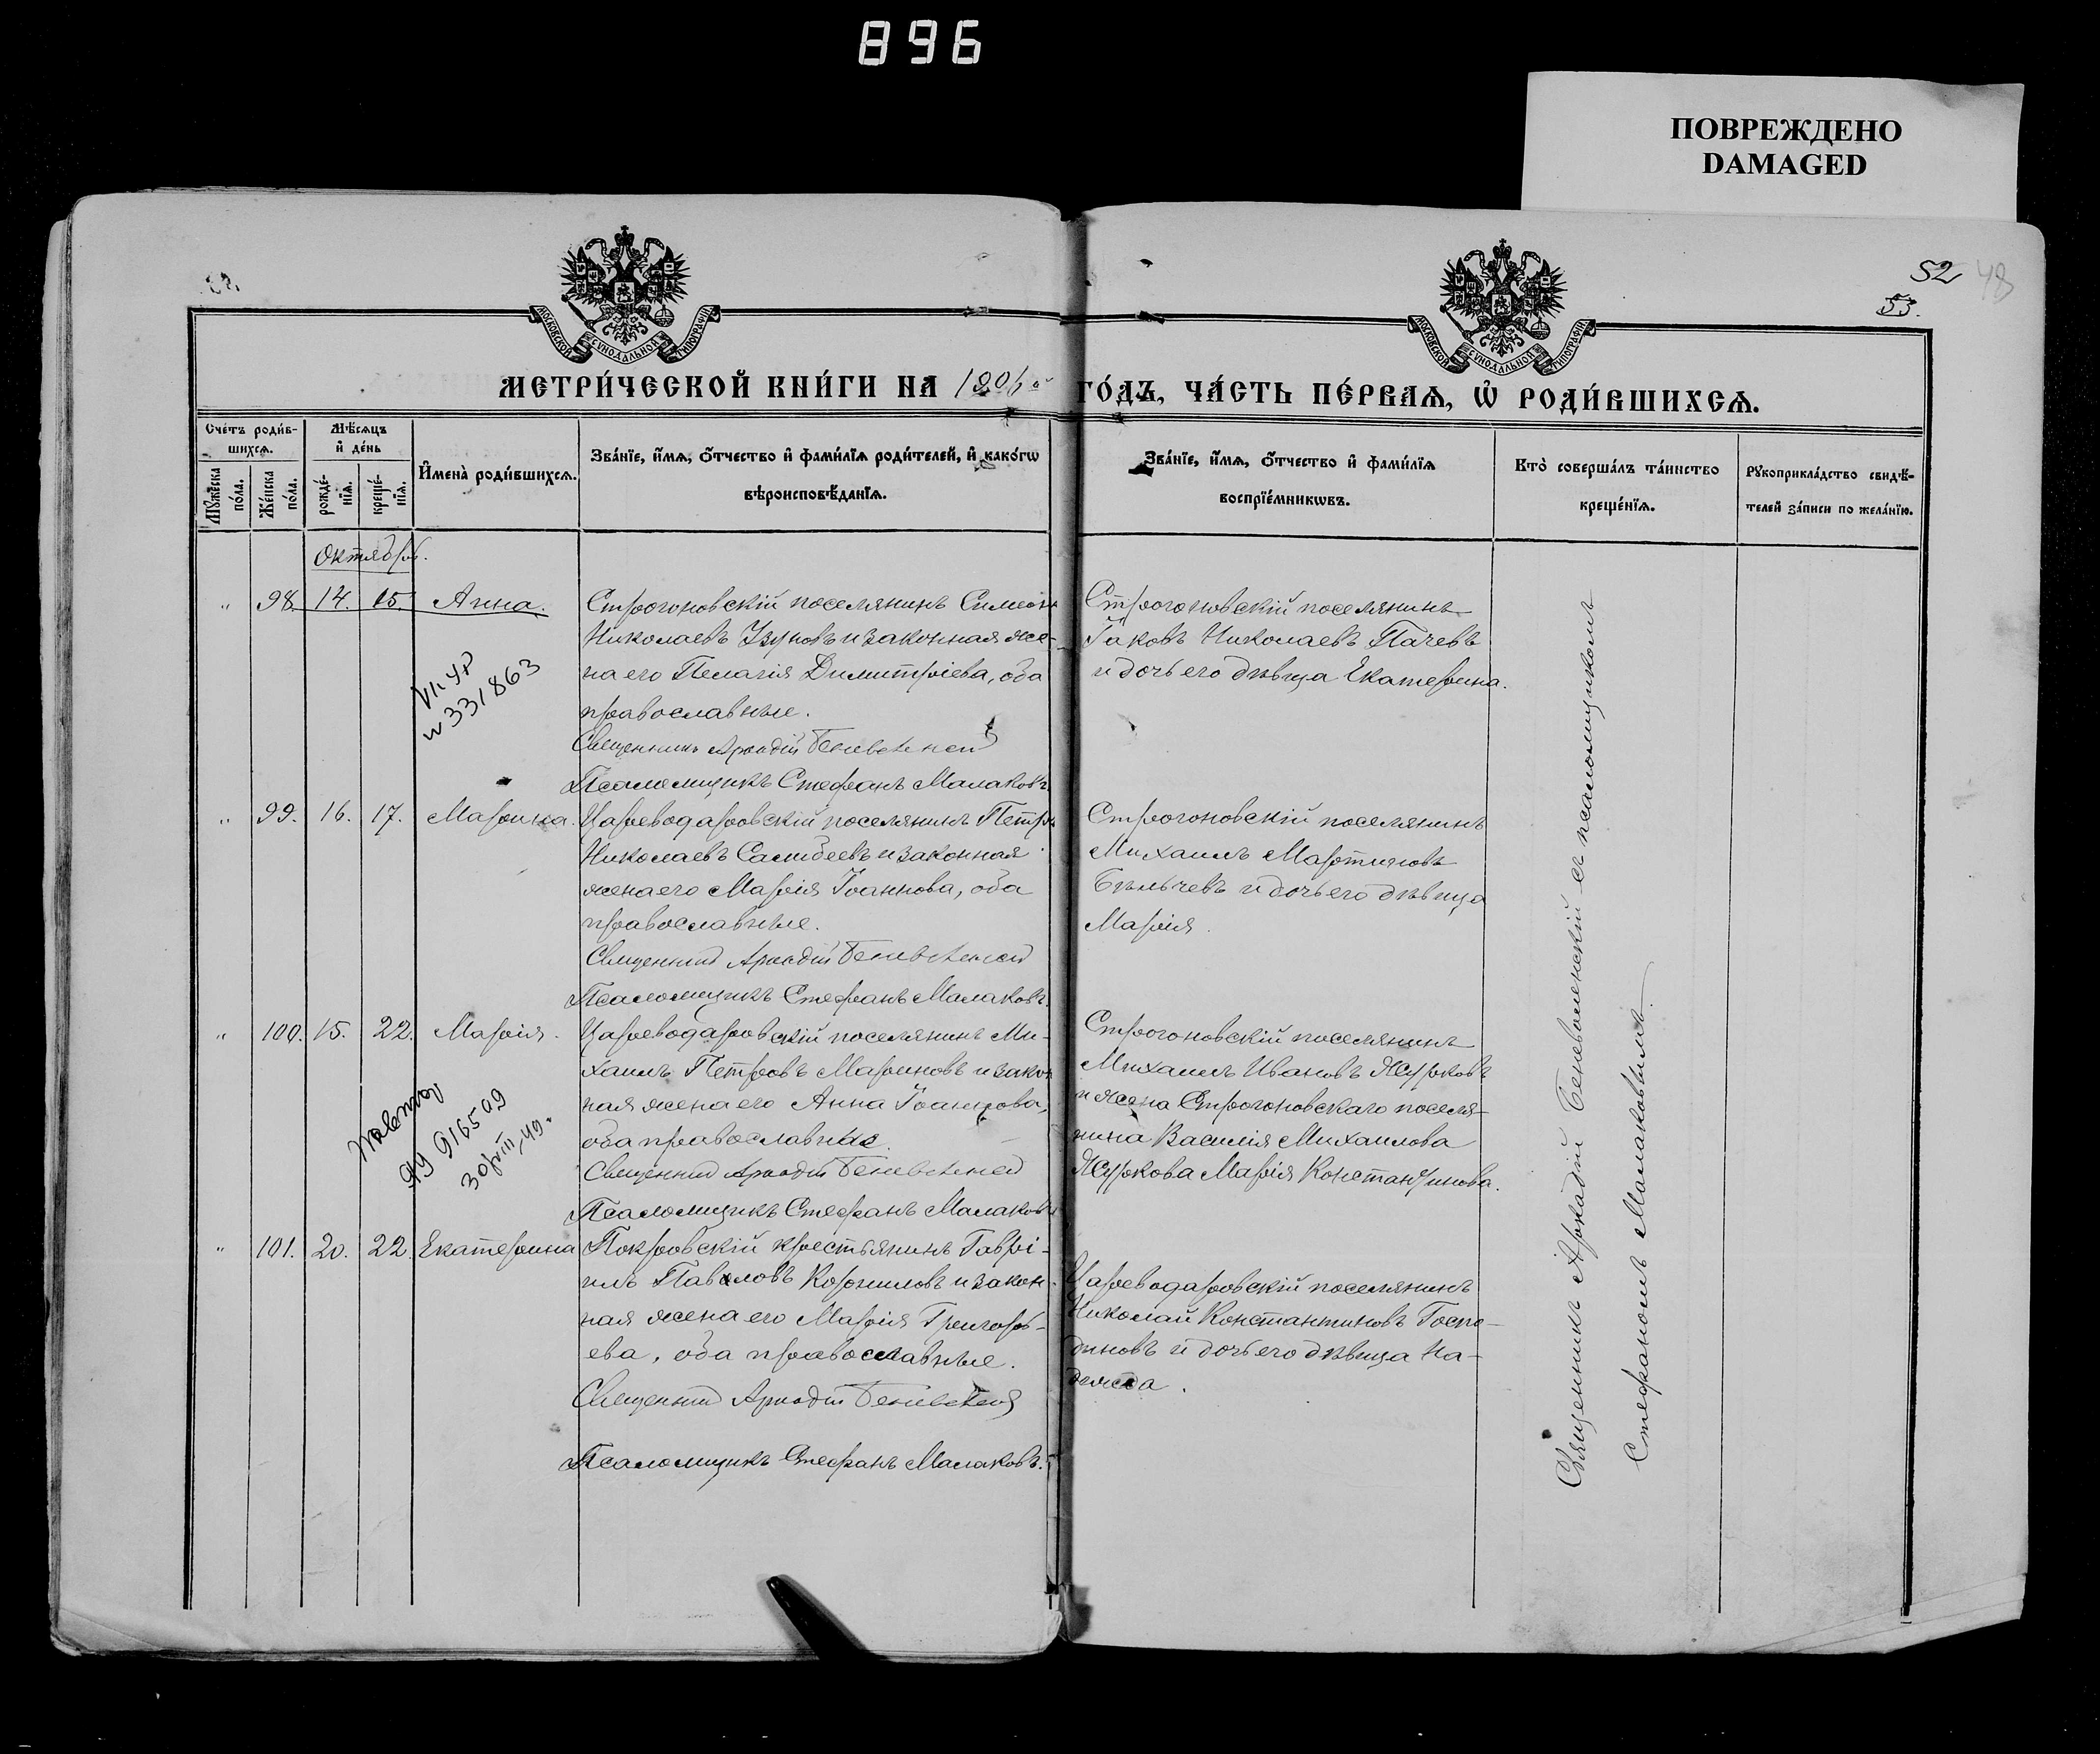 896
ПОВРЕЖДЕНО
DAMAGED
52
48
53.
МОСКОВСКОЙ СУНОДАЛЬНОЙ ТИПОГРАФІИ
МОСКОВСКОЙ СУНОДАЛЬНОЙ ТИПОГРАФІИ
МЕТРИ́ЧЕСКОЙ КНИ́ГИ НА 1906 й ГО́ДЪ, ЧА́СТЬ ПЕ́РВАѦ, Ѡ҆ РОДИ́ВШИХСѦ.
Сче́тъ роди́в-
шихсѧ.
Мѣ́сѧцъ
и҆ де́нь
Мꙋ́жеска
по́ла.
Же́нска
по́ла.
рожде́-
нїѧ.
креще́-
нїѧ.
И҆мена̀ роди́вшихсѧ.
Зва́нїе, и҆́мѧ, ѻ҆́тчество и҆ фами́лїѧ роди́телей, и҆ како́гѡ
вѣроисповѣ́данїѧ.
Зва́нїе, и҆́мѧ, ѻ҆́тчество и҆ фами́лїѧ
воспрїе́мникѡвъ.
Кто̀ соверша́лъ та́инство
креще́нїѧ.
Рꙋкоприкла́дство свидѣ́-
телей за́писи по жела́нїю.
Октябрь.
" 98. 14. 15. Анна.
Строгоновскій поселянинъ Симеонъ
Николаевъ Узуновъ и законная же-
на его Пелагія Димитріева, оба
православные.
Священникъ Аркадій Беневоленскій
Псаломщикъ Стефанъ Малаковъ.
Строгоновскій поселянинъ
Іаковъ Николаевъ Пачевъ
и дочь его дѣвица Екатерина.
№331863
" 99. 16. 17. Марина.
Цареводаровскій поселянинъ Петръ
Николаевъ Самбеевъ и законная
жена его Марія Іоаннова, оба
православные.
Священникъ Аркадій Беневоленскій
Псаломщикъ Стефанъ Малаковъ.
Строгоновскій поселянинъ
Михаилъ Мартиновъ
Бѣльчевъ и дочь его дѣвица
Марія.
" 100. 15. 22. Марія.
Цареводаровскій поселянинъ Ми-
хаилъ Петровъ Мариновъ и закон
ная жена его Анна Іоаннова,
оба православные.
Священникъ Аркадій Беневоленскій
Псаломщикъ Стефанъ Малаковъ
Строгоновскій поселянинъ
Михаилъ Ивановъ Журковъ
и жена Строгоновскаго поселя-
нина Василія Михаилова
Журкова Марія Константинова.
30/VIII-49.
" 101. 20. 22. Екатерина
Покровскій крестьянинъ Гаврі-
илъ Павловъ Корниловъ и закон-
ная жена его Марія Григорь-
ева, оба православные.
Священникъ Аркадій Беневоленскій
Псаломщикъ Стефанъ Малаковъ.
Цареводаровскій поселянинъ
Николай Константиновъ Госпо-
диновъ и дочь его дѣвица На-
дежда.
Священникъ Аркадій Беневоленскій съ псаломщикомъ
Стефаномъ Малаковымъ.